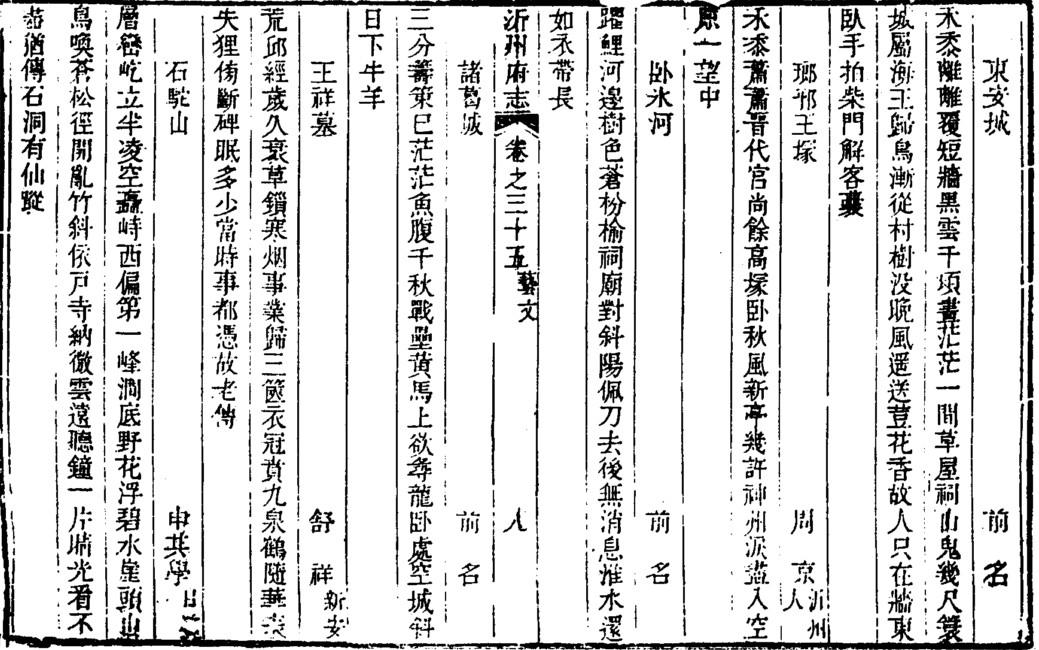 東安城　前名
禾黍離離覆短牆黑雲千頃晝茫茫一間草屋祠山鬼幾尺簑
城屬海王歸鳥漸從村樹没晚風遥送荳花香故人只在牆東
臥手拍柴門解客裝
瑯邪王塚　周京沂州人
禾黍蕭蕭晋代宮尚餘高塚卧秋風新亭幾許神州淚盡入空
原一望中
卧冰河　前名
躍鯉河邊樹色蒼枌榆祠廟對斜陽佩刀去後無消息淮水還
如衣帶長
沂州府志　卷之三十五　藝文　八
諸葛城　前名
三分籌策已茫茫魚腹千秋戰壘黄馬上欲尋龍卧處空城斜
日下牛羊
王祥墓　舒祥新安
荒邱經歲久衰草鎖寒烟事業歸三篋衣冠賁九泉鶴隨華表
失狸倚斷碑眠多少當時事都憑故老傳
石駝山　申其學
層巒屹立半凌空矗峙西偏第一峰澗底野花浮碧水崖頭山
鳥喚蒼松徑開亂竹斜依戸寺納微雲遠聽鐘一片晴光看不
盡猶傳石洞有仙蹤